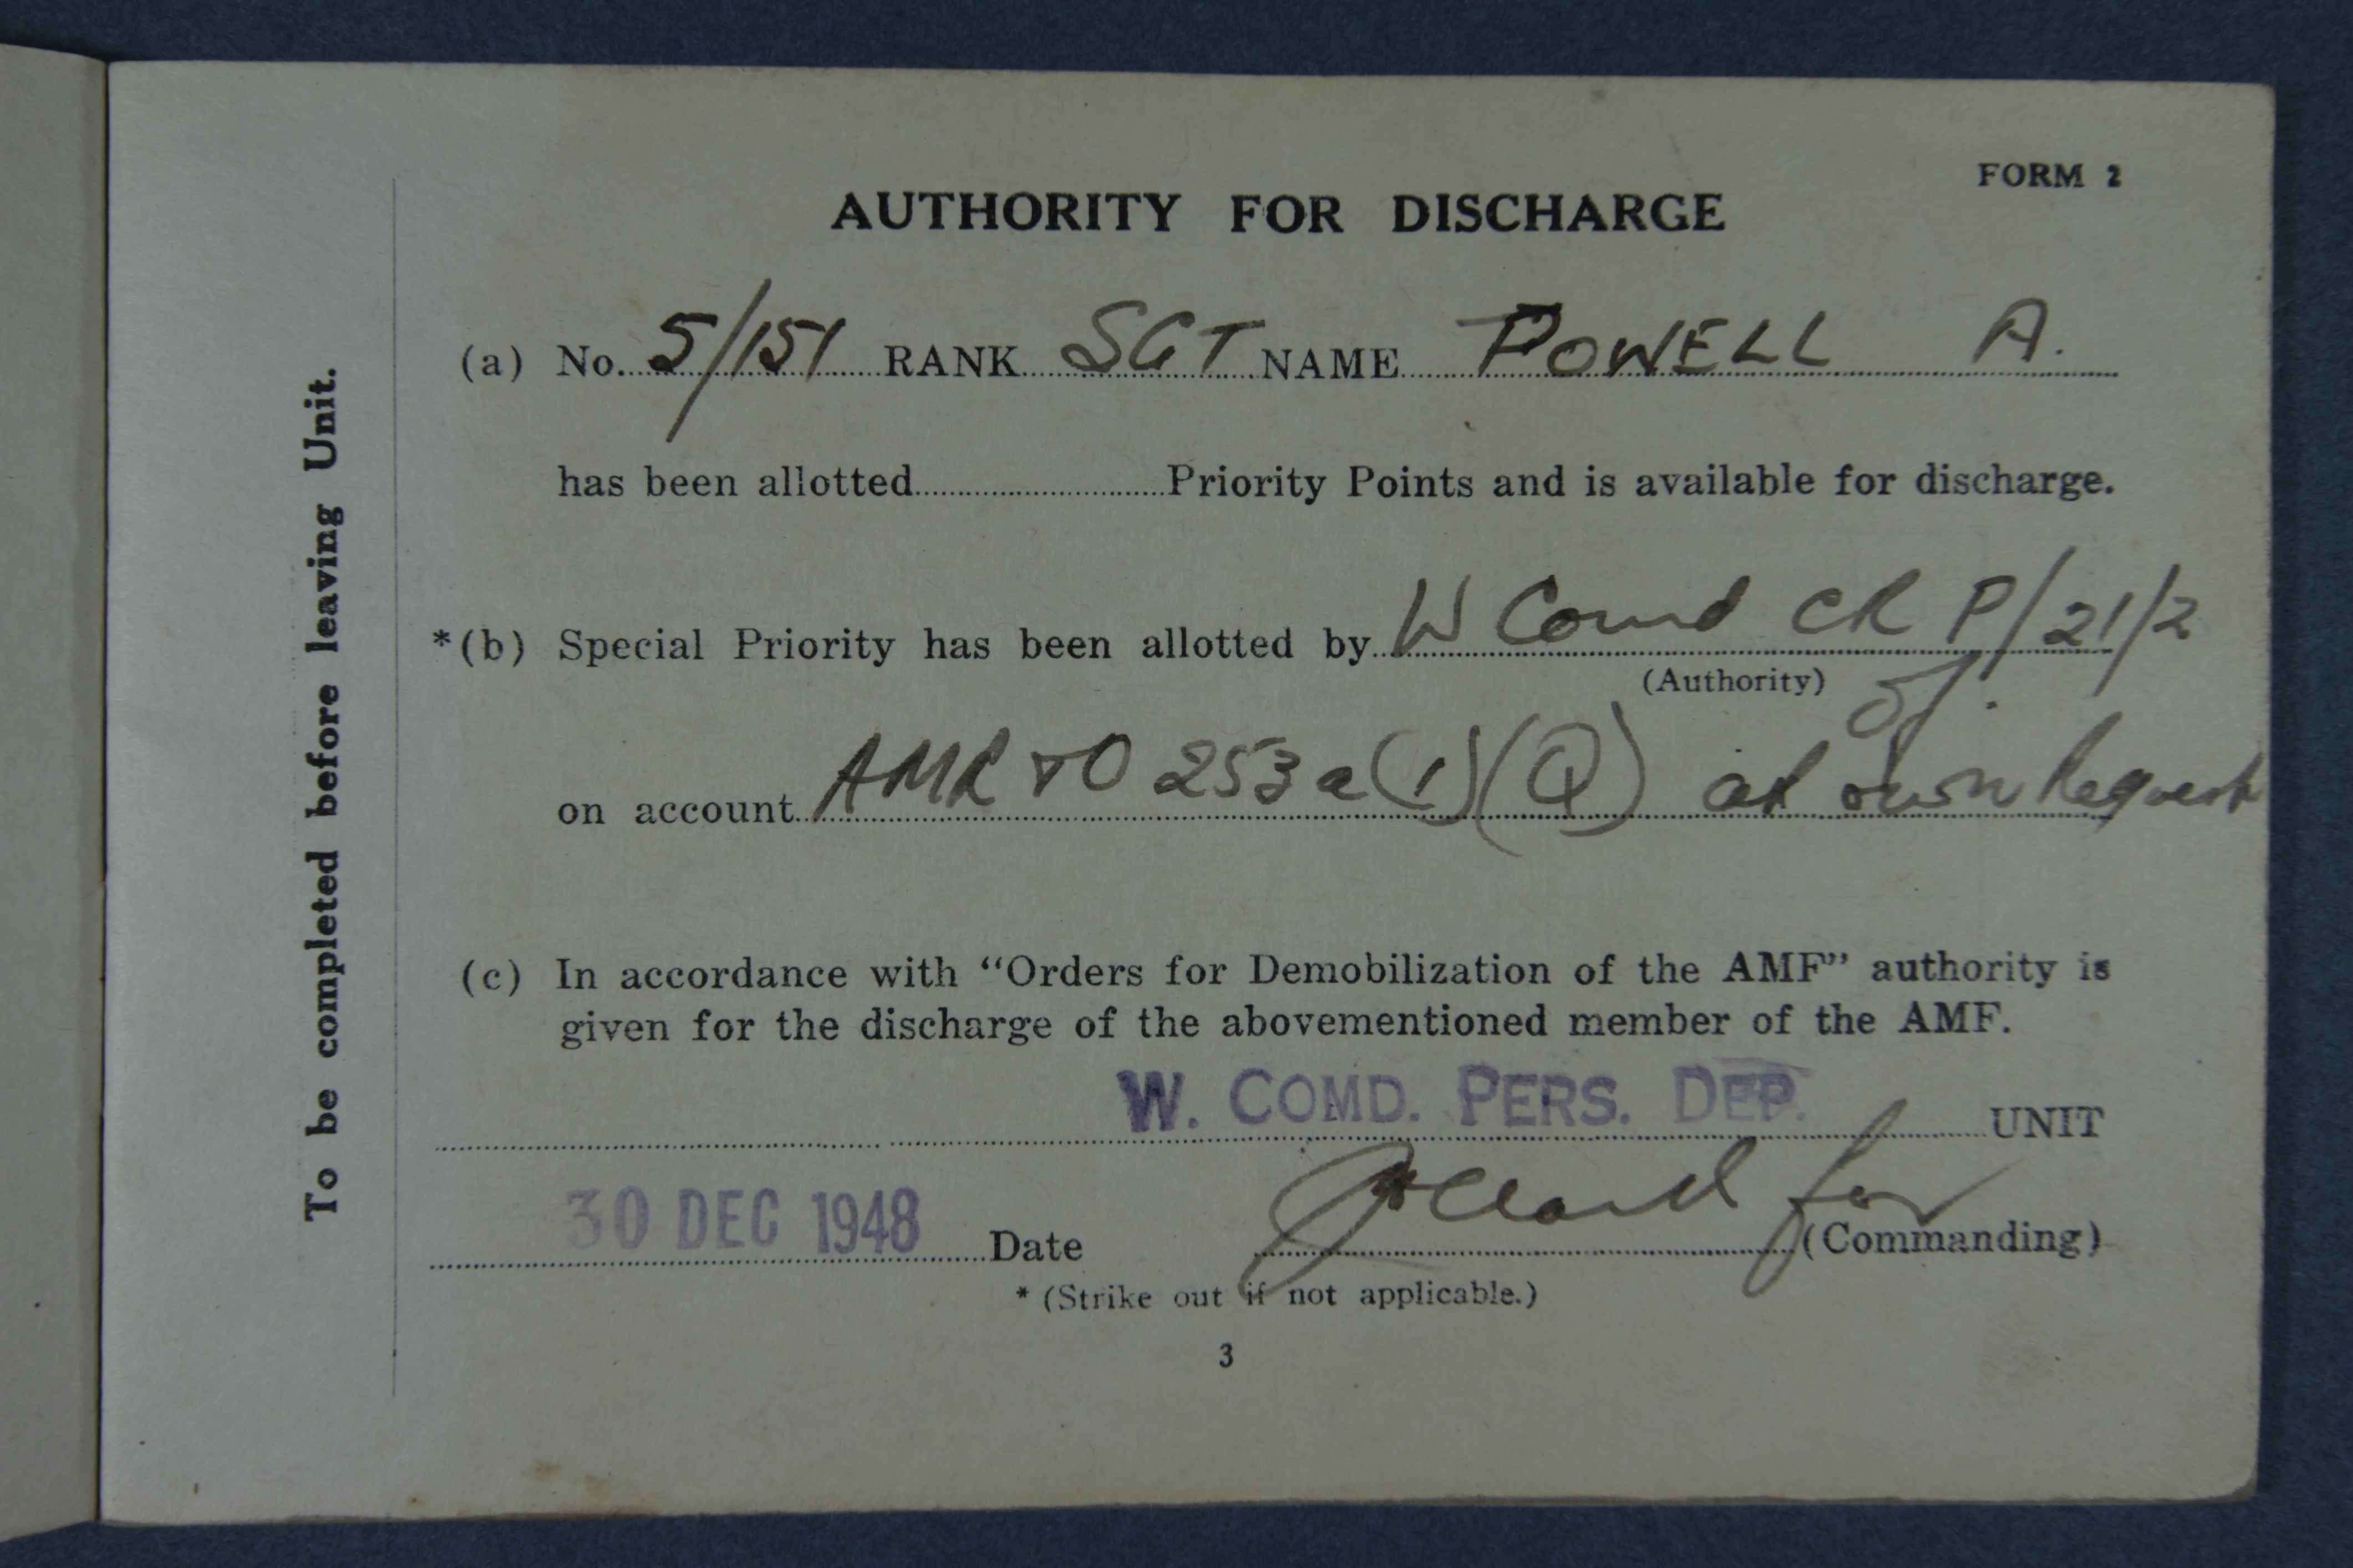 FORM 2
AUTHORITY FOR DISCHARGE
(a) No. 5/151 RANK SGT NAME POWELL A.
has been allotted Priority Points and is available for discharge.
*(b) Special Priority has been allotted by W Comd CR P/21/2
(Authority)
on account AMR &O 253a(1)(Q) at own Request
of.
(c) In accordance with “Orders for Demobilization of the AMF” authority is
given for the discharge of the abovementioned member of the AMF.
W. COMD. PERS. DEP. UNIT
30 DEC 1948 Date for (Commanding)
* (Strike out if not applicable.)
3
To be completed before leaving Unit.